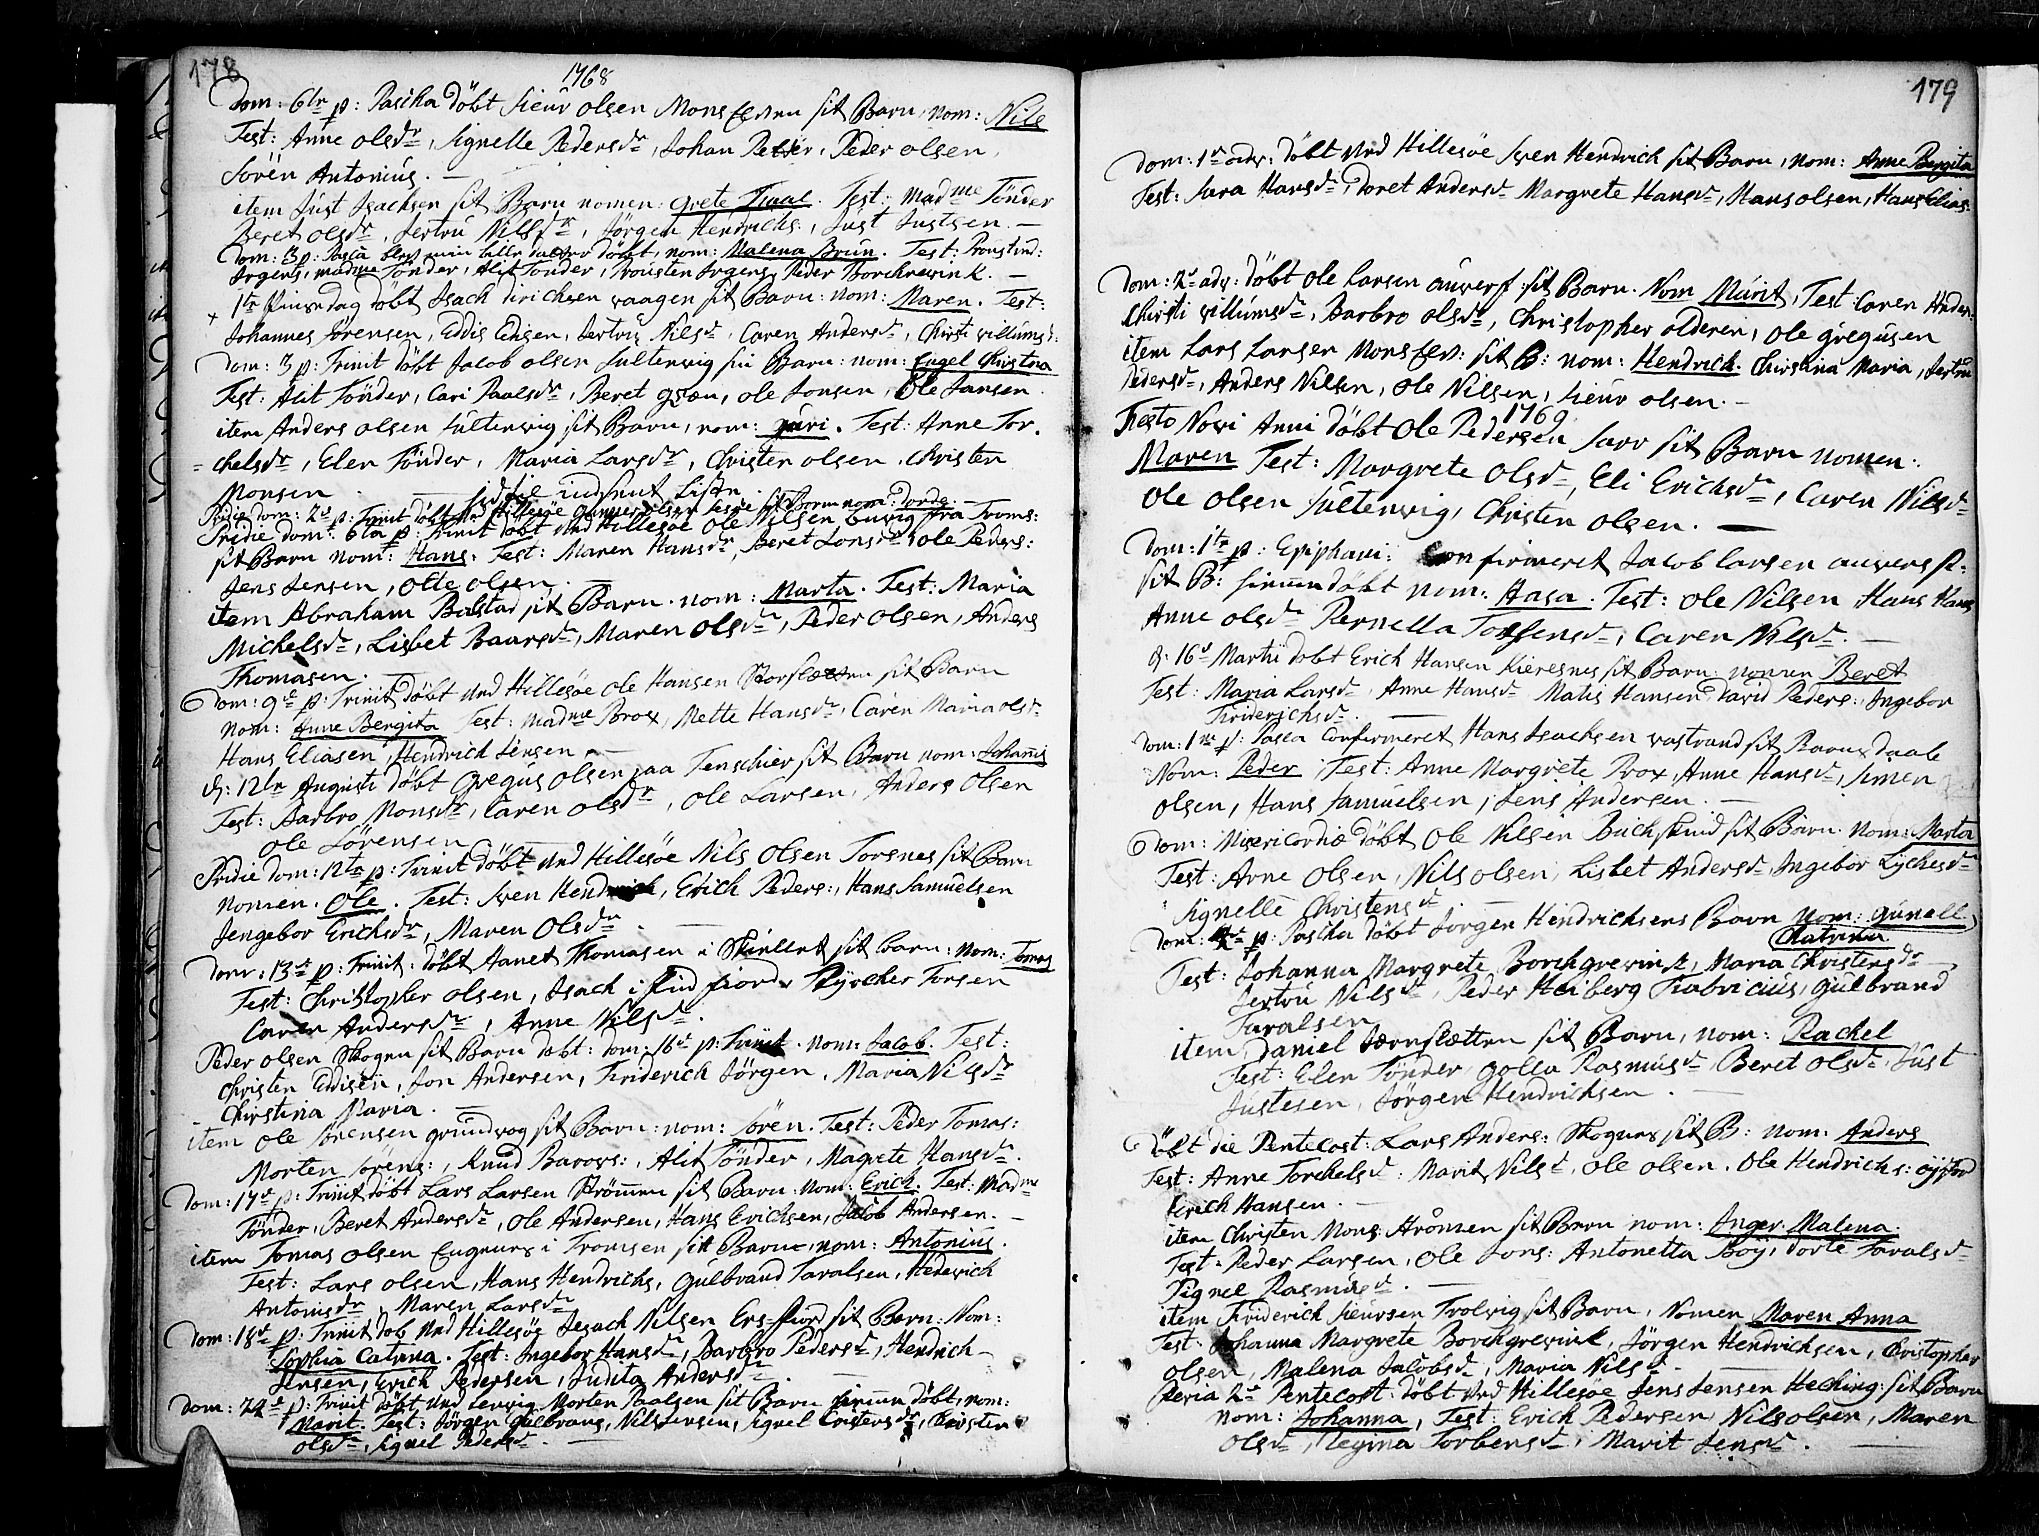 178
1768
Dom: 6ta p: Pascha döbt Sieur Olsen Mons sit Barn, nom: Nils
Test: Anne Olsdr, Signelle Pedersdr, Johan Peder, Peder Olsen,
Sören Antonius. —
item Just Isachsen sit Barn nomen: Grete . Test: Madme Tönder
Beret Olsdr, Sertru Nilsdr, Jörgen Hendrichs:, Just Justsen. —
Dom: 3 p: Pasca blev min lille datter döbt, nom: Malena Brun. Test:
Irgens, madme Tönder, Alit Tönder, Irgens, Peder Borchrewink. —
1te Pinsdag döbt Isach Dirichsen vaagen sit Barn: nom: Maren. Test:
Johannes Sörensen, Eddis , Sertru Nilsdr, Caren Andersdr, Chirsti Villumsd:
Dom: 3 p: Trinit döbt Jacob Olsen Sultenvig sin Barn: nom: Engel Christina
Test: Alit Tönder, Cari Paalsdr, Beret , Ole Jonsen, Ole Jansen
item Anders Olsen Sultenvig sit Barn, nom: Guri. Test: Anne Tor-
= chelsdr, Elen Tönder, Maria Larsdr, Christen Olsen, Christen
Monsen
Pridie Dom: 2d p: Trinit döbt ved Hillesöe sit Barn nom: Dorde. —
Pridie Dom: 6ta p: Trinit döbt ved Hillesöe Ole Nilsen fra Troms:
sit Barn nom: Hans. Test: Maren Hansdr, Beret Jonsdr, Ole Peders:
Jens Jensen, Otte Olsen. —
item Abraham Balstad sit Barn. nom: Marta. Test: Maria
Michelsdr, Lisbet Baarsdr, Maren Olsdr, Peder Olsen, Anders
Thomasen. —
Dom: 9de p: Trinit döbt ved Hillesöe Ole Hansen sit Barn
nom: Anne Bergita Test: madme Brox, Mette Hansdr, Caren Maria Olsdr
Hans Eliasen, Hendrich Jensen. —
d: 12te Augusti döbt Gregus Olsen paa Tenschier sit Barn nom: Johanis
Test: Barbro Monsdr, Caren Olsdr, Ole Larsen, Anders Olsen
Ole Sörensen
Pridie Dom: 12te p: Trinit döbt ved Hillesöe Nils Olsen Torsnes sit Barn
nomen. Ole. Test: Sven Hendrich, Erich Peders:, Hans Samuelsen
Jengebor Erichsdr, Maren Olsdr
Dom: 13de p: Trinit: döbt Thomasen i sit barn: nom: Tomas
Test: Christopher Olsen, Isach i fiord, Torsen
Caren Andersdr, Anne Nilsdr.
Peder Olsen Skogen sit Barn döbt: Dom: 16de p: Trinit. nom: Jacob. Test:
Christen Eddisen, Jon Andersen, Friderich Jörgen, Maria Nilsdr
Chirstina Maria. —
item Ole Sörensen Grundvog sit Barn: nom: Sören. Test: Peder Tomas:
Morten Sörens:, Knud , Alit Tönder, Magrete Hansdr.
Dom: 17de p: Trinit döbt Lars Larsen Strömmen sit Barn: nom: Erich. Test: Madme
Tönder, Beret Andersdr, Ole Andersen, Hans Erichsen, Jacob Andersen. —
item Tomas Olsen i Tromsen sit Barn, nom: Antonius.
Test: Lars Olsen, Hans Hendrichs, Gulbrand Taralsen, Hedevich
Antonisdr, Maren Larsdr
Dom: 18de p: Trinit dob ved Hillesöe Isach Nilsen Ersfiord sit Barn: Nom:
Sophia Catrina. Test: Ingebor Hansdr, Barbro Pedersdr, Hendrich
Jensen, Erich Pedersen, Judita Andersdr —
Dom: 22de p: Trinit döbt ved Morten Paalsen sit Barn döbt, nom:
Marit. Test: Jörgen Gulbrans, Nils Jensen, Signel Cristensdr, Kiersten
Olsdr, Signel Pedersdr. —
179
Dom: 1ma adv: döbt ved Hillesöe Sven Hendrich sit Barn, nom: Anne Bergita
Test: Sara Hansdr, Doret Andersdr Margrete Hansdr, Hans Olsen, Hans Elias:
Dom: 2d adv: döbt Ole Larsen sit Barn. Nom Marit, Test: Caren Anders:
Chirsti Villumsdr, Barbro Olsdr, Christopher Olderen, Ole Gregusen
item Lars Larsen sit B: nom: Hendrich. Chirstina Maria, Sertru
Pedersdr, Anders Nilsen, Ole Nilsen, Sieur Olsen. —
1769
Festo Novi Anni döbt Ole Pedersen sit Barn nomen:
Maren Test: Margrete Olsdr, Eli Erichsdr, Caren Nilsdr
Ole Olsen Sultenvig, Christen Olsen. —
Dom: 1te p: Epiphani: Confirmeret Jacob Larsen
sit B: döbt nom: Aasa. Test: Ole Nilsen Hans Hans
Anne Olsdr Pernella , Caren Nilsdr. —
d: 16d Martii döbt Erich Hansen Kieresnes sit Barn nomen Beret
Test: Maria Larsdr Anne Hansdr Matis Hansen David Peders:, Ingebor
Friderichsdr. —
Dom: 1ma p: Pasca Confirmeret Hans Isachsen vastrand sit Barns daab
Nom: Peder. Test: Anne Margrete Brox, Anne Hansdr, Simen
Olsen, Hans Samuelsen, Jens Andersen. —
Dom: Misericordiæ döbt Ole Nilsen sit Barn. nom: Marta
Test: Arne Olsen, Nils Olsen, Lisbet Andersdr, Ingebor Lychesdr
Signelle Christensdr —
Dom: 4de p: Pascha döbt Jörgen Hendrichsens Barn nom: Gunell
Chatrina
Test: Johanna Margrete Borchgrewink, Maria Christensdr
Sertru Nilsdr, Peder Heiberg Fabricius, Gulbrand
Taralsen
item Daniel sit Barn, nom: Rachel
Test: Elen Tönder, Golla Rasmusdr Beret Olsdr, Just
Justesen, Jörgen Hendrichsen. —
döbt die Pentecost: Lars Anders: sit B: nom: Anders
Test: Anne Torchelsdr: Marit Nilsdr, Ole Olsen. Ole Hendrichs:
Erich Hansen. —
item Christen Mons: sit Barn nom: Inger Malena.
Test: Peder Larsen, Ole Jons: Antonetta Boy, Dorte Taralsdr
Signel Rasmusdr. —
item Friderich Sieursen Trolvig sit Barn, Nomen Maren Anna
Test: Johanna Margrete Borchgrewink, Jörgen Hendrichsen, Christopher
Olsen, Malena Jacobsdr, Maria Nilsdr. —
Feria 2d Pentecost: döbt ved Hillesöe Jens Jensen sit Barn
nom: Johanna, Test: Erich Pedersen, Nils Olsen, Maren
Olsdr, Regina Torbensdr, Marit Jensdr. —